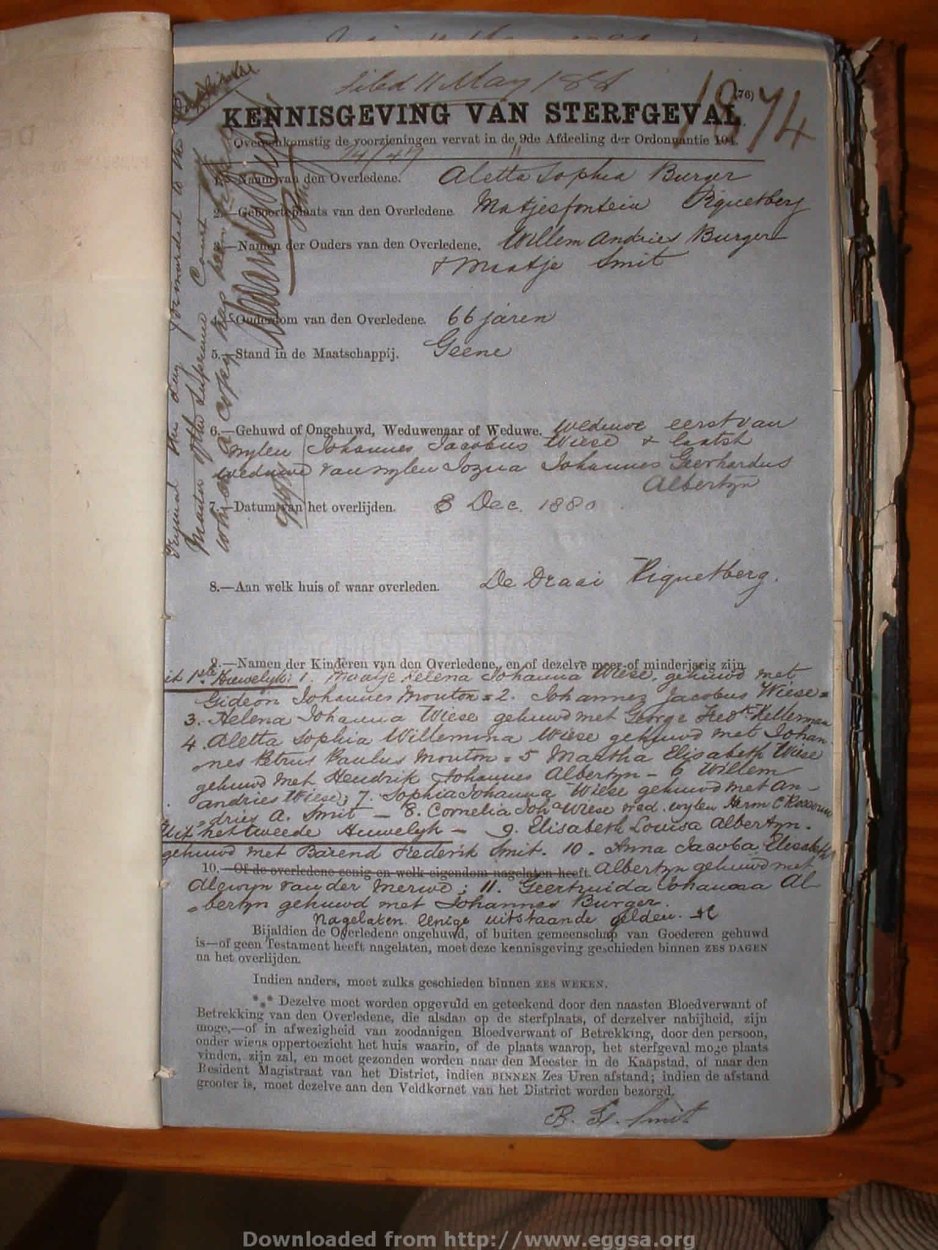 Filed 11 May 188
1874
76)
KENNISGEVING VAN STERFGEVAL,
Overeenkomstig de voorzieningen vervat in de 9de Afdeeling der Ordonnantie 104.
1.—Naam van den Overledene. Aletta Sophia Burger
2.—Geboorteplaats van den Overledene Matjesfontein Piquetberg
3.—Namen der Ouders van den Overledene. Willem Andries Burger
& Maatje Smit
4.—Ouderdom van den Overledene. 66 jaren
5.—Stand in de Maatschappij. Geene
6.—Gehuwd of Ongehuwd, Weduwenaar of Weduwe. Weduwe eerst van
wylen Johannes Jacobus Wiese & laatst
weduwe van wylen Jozua Johannes Gerhardus
Albertyn
7.—Datum van het overlijden. 8 Dec. 1880
8.—Aan welk huis of waar overleden. De Draai Piquetberg.
9.—Namen der Kinderen van den Overledene, en of dezelve meer- of minderjarig zijn
uit 1ste Huwelyk: 1. Maatje Helena Johanna Wiese, gehuwd met
Gideon Johannes Mouton = 2. Johannes Jacobus Wiese =
3. Helena Johanna Wiese gehuwd met George Fredk Kellerman
4. Aletta Sophia Willemina Wiese gehuwd met Johan
nes Petrus Paulus Mouton = 5 Martha Elisabeth Wiese
gehuwd met Hendrik Johannes Albertyn – 6 Willem
Andries Wiese; 7. Sophia Johanna Wiese gehuwd met An-
dries A. Smit – 8. Cornelia Joha Wiese wed. wylen Herm C Rossouw
Uit het tweede Huwelyk – 9. Elisabeth Louisa Albertyn.
gehuwd met Barend Frederik Smit. 10. Anna Jacoba Elisabeth
10.—Of de overledene eenig en welk eigendom nagelaten heeft. Albertyn gehuwd met
Alewyn van der Merwe; 11. Geertruida Johanna Al
bertyn gehuwd met Johannes Burger.
Nagelaten Eenige uitstaande gelden.
Bijaldien de Overledene ongehuwd, of buiten gemeenschap van Goederen gehuwd
is—of geen Testament heeft nagelaten, moet deze kennisgeving geschieden binnen ZES DAGEN
na het overlijden.
Indien anders, moet zulks geschieden binnen ZES WEKEN.
*** Dezelve moet worden opgevuld en geteekend door den naasten Bloedverwant of
Betrekking van den Overledene, die alsdan op de sterfplaats, of derzelver nabijheid, zijn
moge,—of in afwezigheid van zoodanigen Bloedverwant of Betrekking, door den persoon,
onder wiens oppertoezicht het huis waarin, of de plaats waarop, het sterfgeval moge plaats
vinden, zijn zal, en moet gezonden worden naar den Meester in de Kaapstad, of naar den
Resident Magistraat van het District, indien BINNEN Zes Uren afstand; indien de afstand
grooter is, moet dezelve aan den Veldkornet van het District worden bezorgd.
B. F. Smit
this day forwarded to the
Master of the Supreme Court
a copy has been
Downloaded from http://www.eggsa.org